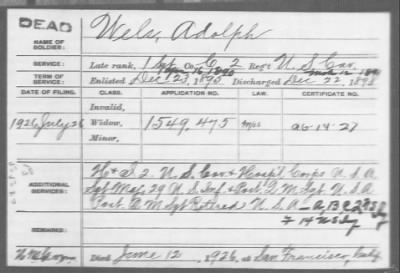 DEAD
Wels, Adolph
NAME OF SOLDIER:
SERVICE: Late rank, 1 Sgt Co. C, 2 Reg't U.S. Cav.
TERM OF SERVICE: Enlisted Dec 23, 1875 Discharged Dec 22, 1898
DATE OF FILING. CLASS. APPLICATION NO. LAW. CERTIFICATE NO.
Invalid,
1926, July 26 Widow, 1549,475 a 6-14-27
Minor,
ADDITIONAL SERVICES: H & I 2 U.S. Cav & Hosp'l Corps U.S.A
Sgt Maj, 29 U.S. Inf. & Post Q M Sgt U.S.A
Post Q M Sgt Retired U.S.A
REMARKS:
Died June 12, 1926, at San Francisco, Calif